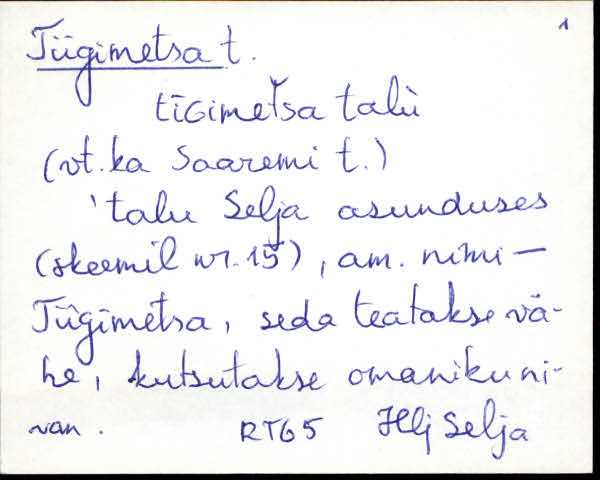 1
Tiigimetsa t.
tīGimetsa talù
(vt. ka Saaremi t.)
'talu Selja asunduses
(skeemil nr. 15), am. nimi —
Tiigimetsa, seda teatakse vä-
he, kutsutakse omaniku ni-
van.
RT65 Hlj Selja